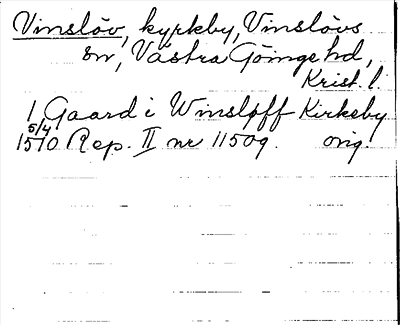 Vinslöv, kyrkby, Vinslövs
sn, Västra Göinge hd,
Krist. l.
1 Gaard i Winsløff Kirkeby
5/4
1510 Rep. II nr 11509. orig.